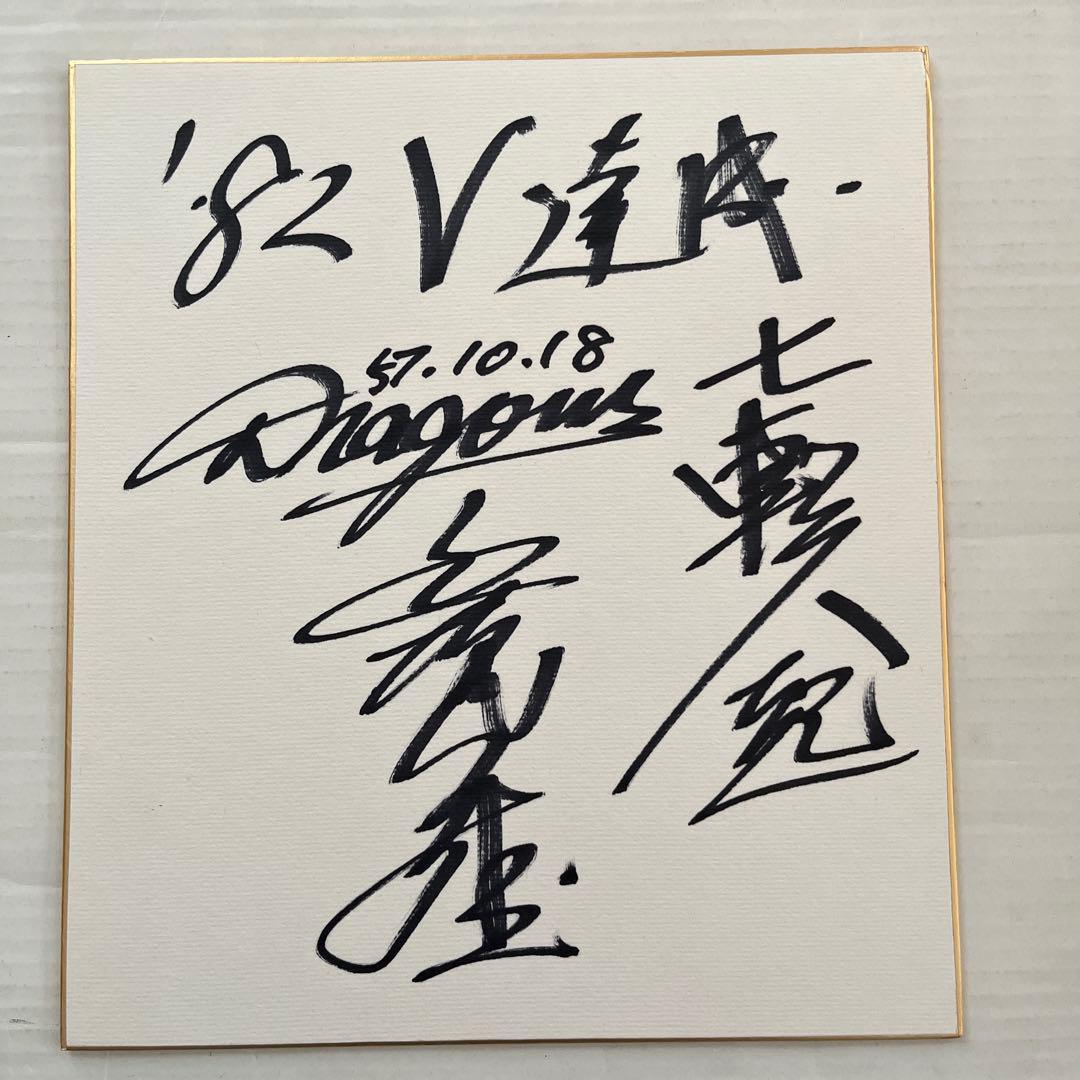 '82 V達成.
57.10.18
Dragons
七転八起